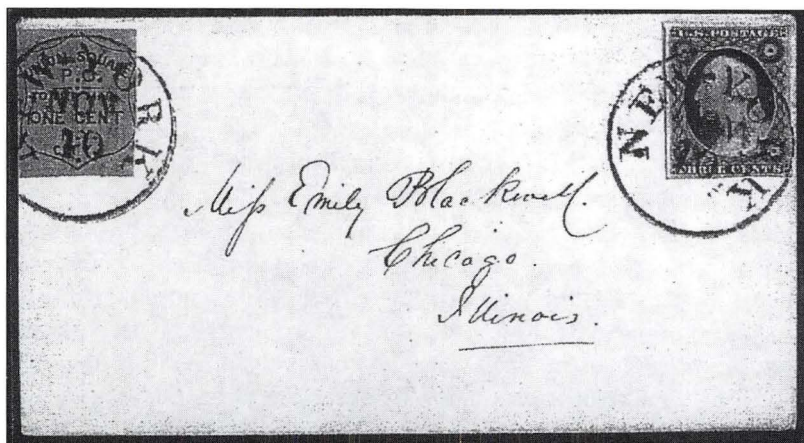 UNION SQUARE
P.O.
NOV
ONE CENT
10
NEW YORK
U.S. POSTAGE
THREE CENTS
NEW YORK
Miss Emily Blackwell.
Chicago.
Illinois.